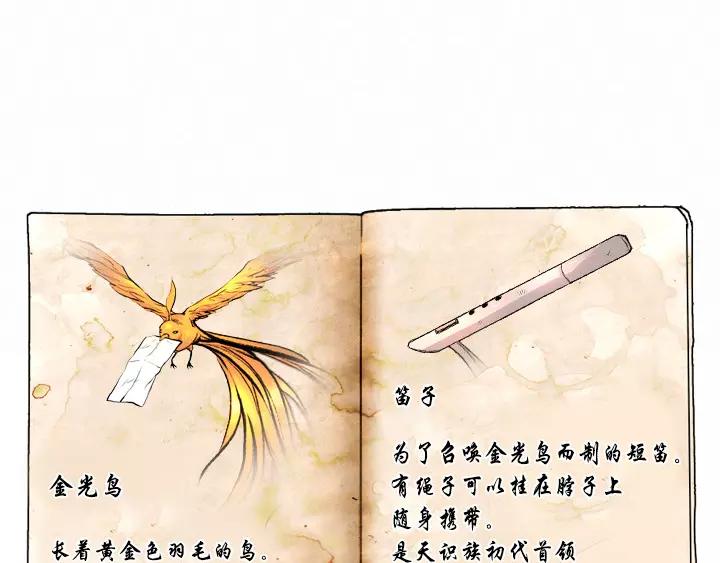 金光鸟
长着黄金色羽毛的鸟。
笛子
为了召唤金光鸟而制的短笛。
有绳子可以挂在脖子上
随身携带。
是天识族初代首领